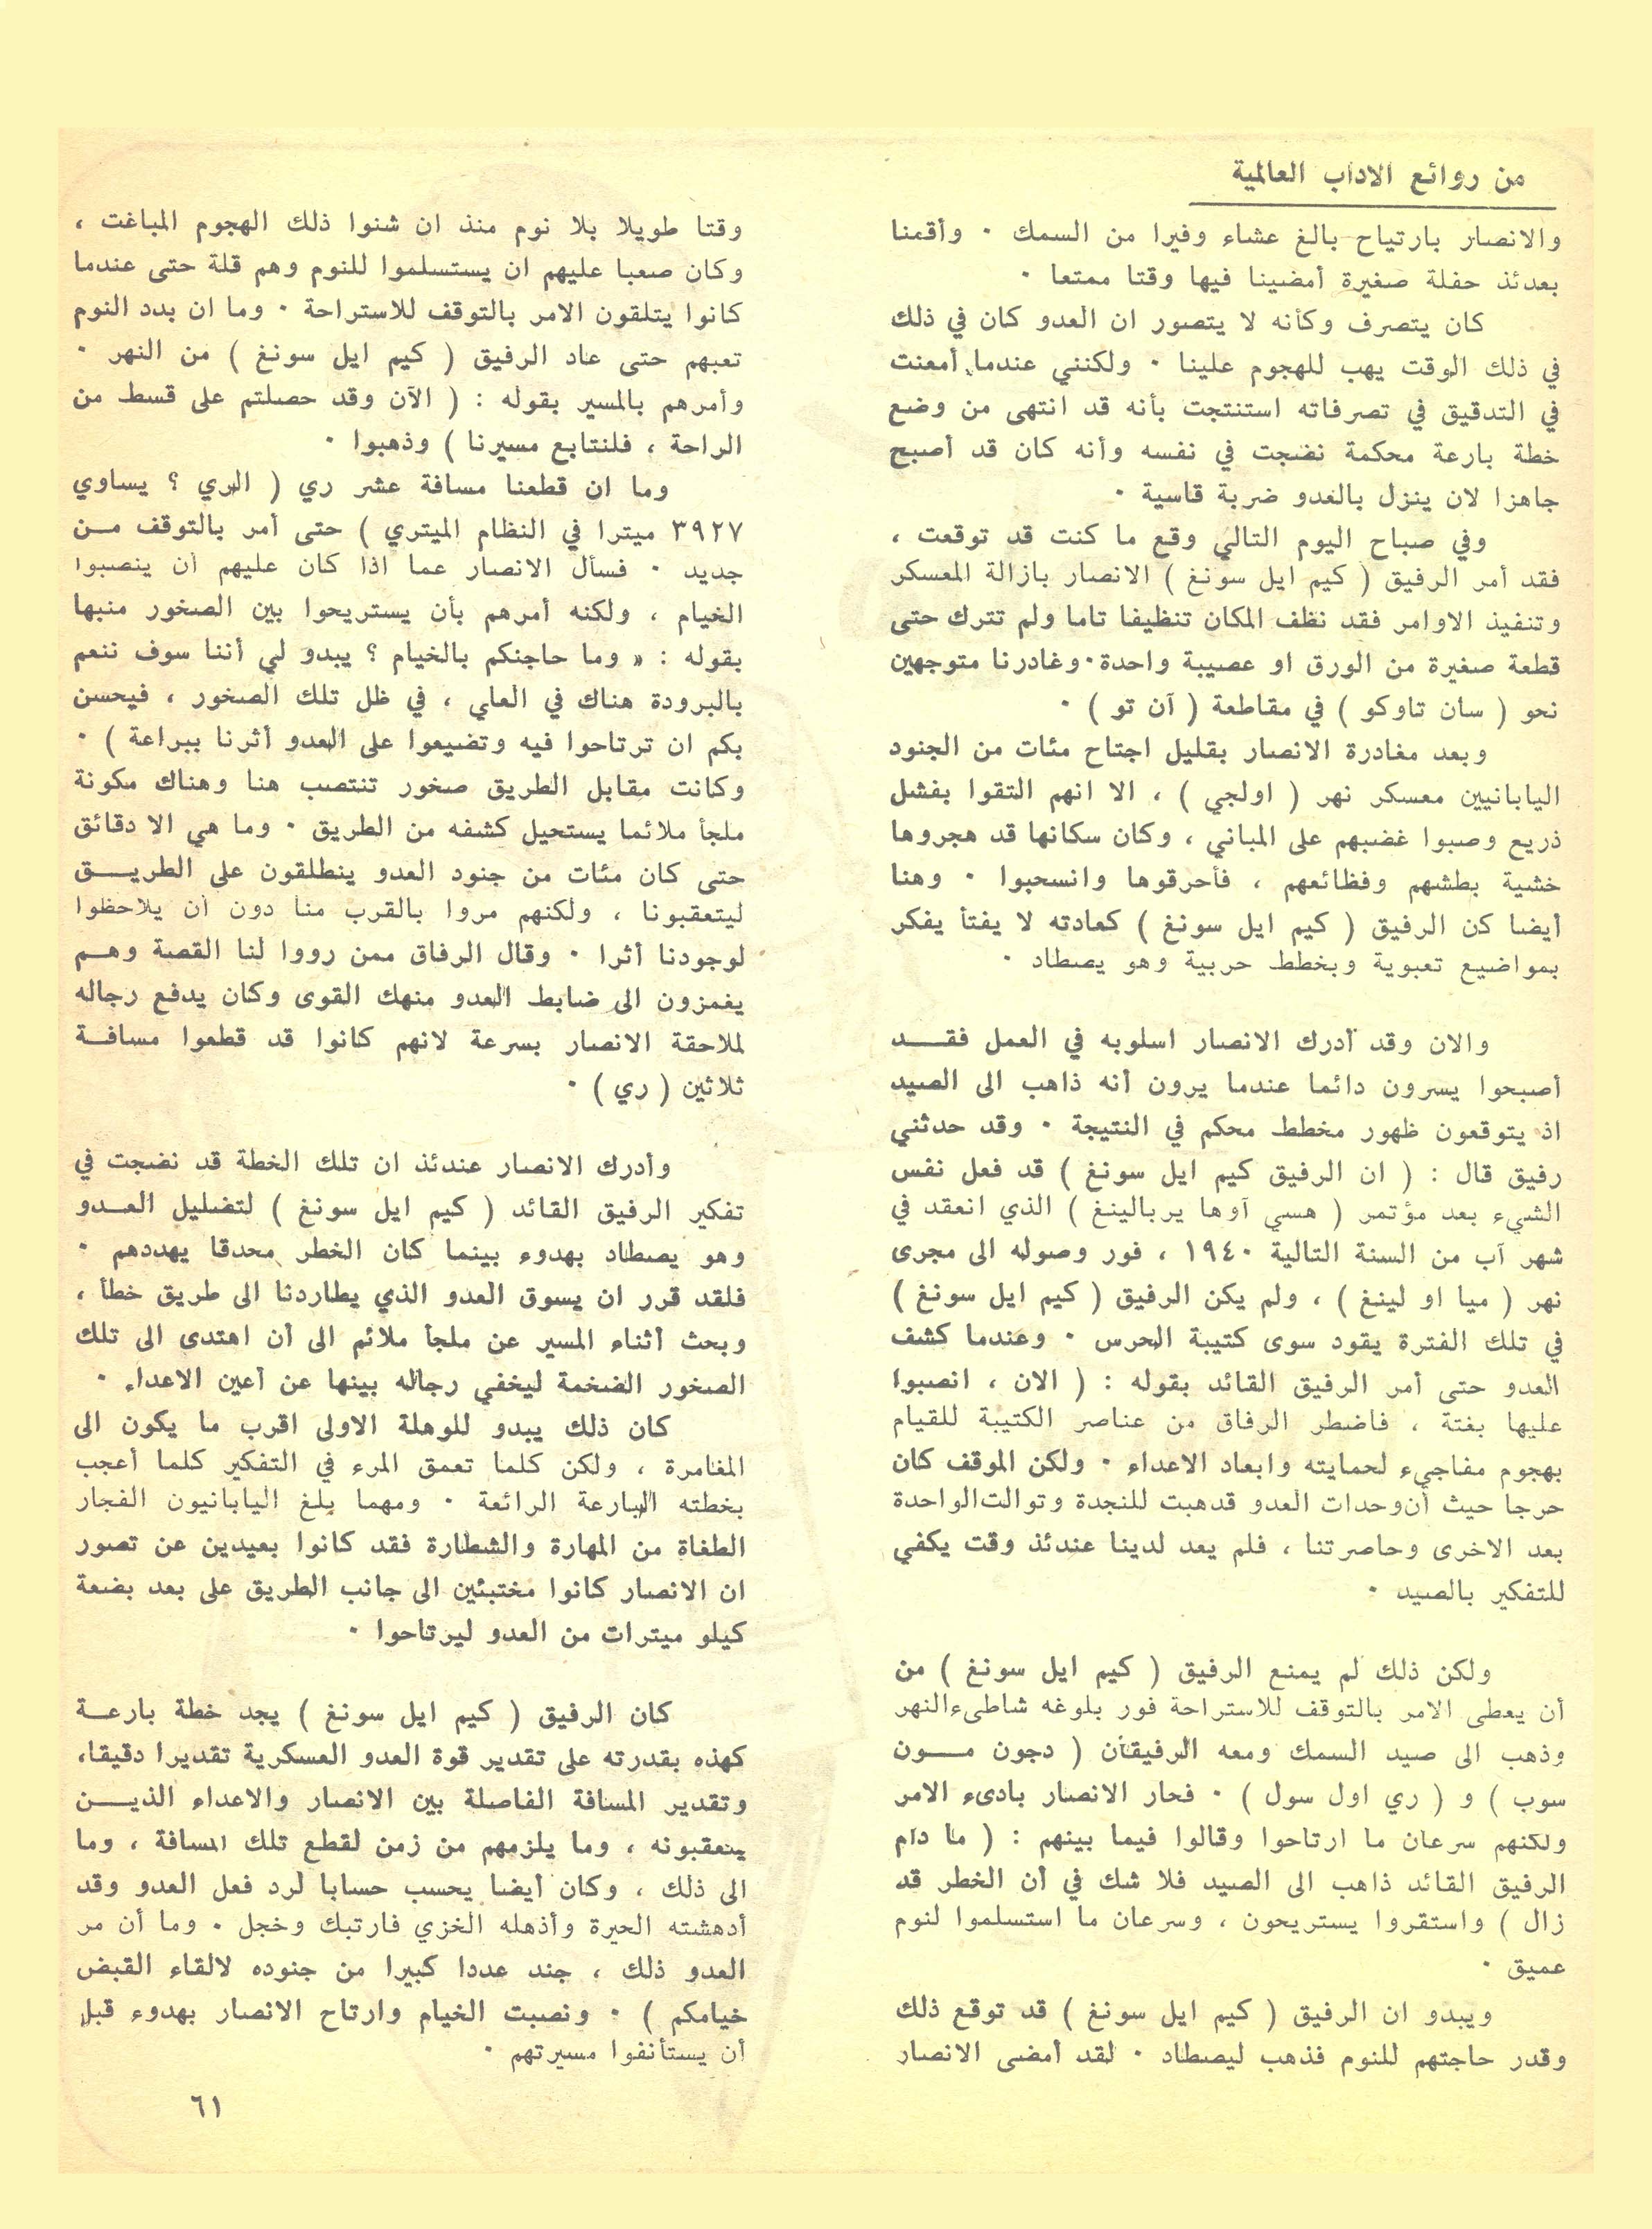 من روائع الاداب العالمية
والانصار بارتياح بالغ عشاء وفيرا من السمك ٠ وأقمنا
بعدئذ حفلة صغيرة أمضينا فيها وقتا ممتعا ٠
كان يتصرف وكأنه لا يتصور ان العدو كان في ذلك
في ذلك الوقت يهب للهجوم علينا ٠ ولكنني عندما أمعنت
في التدقيق في تصرفاته استنتجت بأنه قد انتهى من وضع
خطة بارعة محكمة نضجت في نفسه وأنه كان قد أصبح
جاهزا لان ينزل بالعدو ضربة قاسية ٠
وفي صباح اليوم التالي وقع ما كنت قد توقعت ،
فقد أمر الرفيق ( كيم ايل سونغ ) الانصار بازالة المعسكر
وتنفيذ الاوامر فقد نظف المكان تنظيفا تاما ولم تترك حتى
قطعة صغيرة من الورق او عصيبة واحدة٠وغادرنا متوجهين
نحو ( سان تاوكو ) في مقاطعة ( آن تو ) ٠
وبعد مغادرة الانصار بقليل اجتاح مئات من الجنود
اليابانيين معسكر نهر ( اولجي ) ، الا انهم التقوا بفشل
ذريع وصبوا غضبهم على المباني ، وكان سكانها قد هجروها
خشية بطشهم وفظائعهم ، فأحرقوها وانسحبوا ٠ وهنا
أيضا كن الرفيق ( كيم ايل سونغ ) كعادته لا يفتأ يفكر
بمواضيع تعبوية وبخطط حربية وهو يصطاد ٠
والان وقد أدرك الانصار اسلوبه في العمل فقـــد
أصبحوا يسرون دائما عندما يرون أنه ذاهب الى الصيد
اذ يتوقعون ظهور مخطط محكم في النتيجة ٠ وقد حدثني
رفيق قال : ( ان الرفيق كيم ايل سونغ ) قد فعل نفس
الشيء بعد مؤتمر ( هسي آوها يربالينغ ) الذي انعقد في
شهر آب من السنة التالية ١٩٤٠ ، فور وصوله الى مجرى
نهر ( ميا او لينغ ) ، ولم يكن الرفيق ( كيم ايل سونغ )
في تلك الفترة يقود سوى كتيبة الحرس ٠ وعندما كشف
العدو حتى أمر الرفيق القائد بقوله : ( الان ، انصبوا
عليها بغتة ، فاضطر الرفاق من عناصر الكتيبة للقيام
بهجوم مفاجيء لحمايته وابعاد الاعداء ٠ ولكن الموقف كان
حرجا حيث أن وحدات العدو قد هبت للنجدة وتوالت الواحدة
بعد الاخرى وحاصرتنا ، فلم يعد لدينا عندئذ وقت يكفي
للتفكير بالصيد ٠
ولكن ذلك لم يمنع الرفيق ( كيم ايل سونغ ) من
أن يعطي الامر بالتوقف للاستراحة فور بلوغه شاطىء النهر
وذهب الى صيد السمك ومعه الرفيقأن ( دجون مــون
سوب ) و ( ري اول سول ) ٠ فحار الانصار بادىء الامر
ولكنهم سرعان ما ارتاحوا وقالوا فيما بينهم : ( ما دام
الرفيق القائد ذاهب الى الصيد فلا شك في أن الخطر قد
زال ) واستقروا يستريحون ، وسرعان ما استسلموا لنوم
عميق ٠
ويبدو ان الرفيق ( كيم ايل سونغ ) قد توقع ذلك
وقدر حاجتهم للنوم فذهب ليصطاد ٠ لقد أمضى الانصار
وقتا طويلا بلا نوم منذ ان شنوا ذلك الهجوم المباغت ،
وكان صعبا عليهم ان يستسلموا للنوم وهم قلة حتى عندما
كانوا يتلقون الامر بالتوقف للاستراحة ٠ وما ان بدد النوم
تعبهم حتى عاد الرفيق ( كيم ايل سونغ ) من النهر ٠
وأمرهم بالمسير بقوله : ( الآن وقد حصلتم على قسط من
الراحة ، فلنتابع مسيرنا ) وذهبوا ٠
وما ان قطعنا مسافة عشر ري ( الري ؟ يساوي
٣٩٢٧ ميترا في النظام الميتري ) حتى أمر بالتوقف مــن
جديد ٠ فسأل الانصار عما اذا كان عليهم أن ينصبوا
الخيام ، ولكنه أمرهم بأن يستريحوا بين الصخور منبها
بقوله : « وما حاجنكم بالخيام ؟ يبدو لي أننا سوف ننعم
بالبرودة هناك في العلي ، في ظل تلك الصخور ، فيحسن
بكم ان ترتاحوا فيه وتضيعوا على العدو أثرنا ببراعة ) ٠
وكانت مقابل الطريق صخور تنتصب هنا وهناك مكونة
ملجأ ملائما يستحيل كشفه من الطريق ٠ وما هي الا دقائق
حتى كان مئات من جنود العدو ينطلقون على الطريـــق
ليتعقبونا ، ولكنهم مروا بالقرب منا دون أن يلاحظوا
لوجودنا أثرا ٠ وقال الرفاق ممن رووا لنا القصة وهـم
يغمزون الى ضابط العدو منهك القوى وكان يدفع رجاله
لملاحقة الانصار بسرعة لانهم كانوا قد قطعوا مسافـة
ثلاثين ( ري ) ٠
وأدرك الانصار عندئذ ان تلك الخطة قد نضجت في
تفكير الرفيق القائد ( كيم ايل سونغ ) لتضليل العــدو
وهو يصطاد بهدوء بينما كان الخطر محدقا يهددهم ٠
فلقد قرر ان يسوق العدو الذي يطاردنا الى طريق خطأ ،
وبحث أثناء المسير عن ملجأ ملائم الى أن اهتدى الى تلك
الصخور الضخمة ليخفي رجاله بينها عن أعين الاعداء ٠
كان ذلك يبدو للوهلة الاولى اقرب ما يكون الى
المغامرة ، ولكن كلما تعمق المرء في التفكير كلما أعجب
بخطته البارعة الرائعة ٠ ومهما بلغ اليابانيون الفجار
الطغاة من المهارة والشطارة فقد كانوا بعيدين عن تصور
ان الانصار كانوا مختبئين الى جانب الطريق على بعد بضعة
كيلو ميترات من العدو ليرتاحوا ٠
كان الرفيق ( كيم ايل سونغ ) يجد خطة بارعـة
كهذه بقدرته على تقدير قوة العدو العسكرية تقديرا دقيقا،
وتقدير المسافة الفاصلة بين الانصار والاعداء الذيـــن
يتعقبونه ، وما يلزمهم من زمن لقطع تلك المسافة ، وما
الى ذلك ، وكان أيضا يحسب حسابا لرد فعل العدو وقد
أدهشته الحيرة وأذهله الخزي فارتبك وخجل ٠ وما أن مر
العدو ذلك ، جند عددا كبيرا من جنوده لالقاء القبض
خيامكم ) ٠ ونصبت الخيام وارتاح الانصار بهدوء قبل
أن يستأنفوا مسيرتهم ٠
٦١